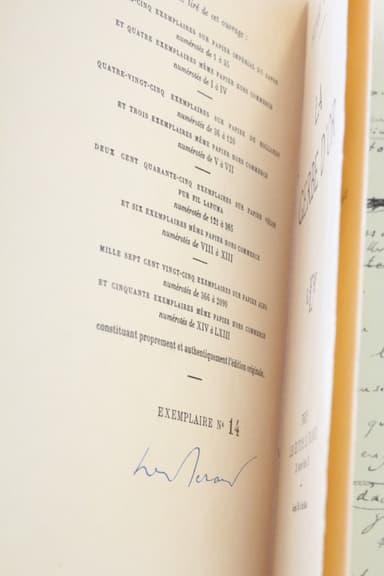 tiré de cet ouvrage :
CINQ EXEMPLAIRES SUR PAPIER IMPÉRIAL DU JAPON
numérotés de 1 à 35
ET QUATRE EXEMPLAIRES MÊME PAPIER HORS COMMERCE
numérotés de I à IV
QUATRE-VINGT-CINQ EXEMPLAIRES SUR PAPIER DE HOLLANDE
numérotés de 36 à 120
ET TROIS EXEMPLAIRES MÊME PAPIER HORS COMMERCE
numérotés de V à VII
DEUX CENT QUARANTE-CINQ EXEMPLAIRES SUR PAPIER VÉLIN
PUR FIL LAFUMA
numérotés de 121 à 365
ET SIX EXEMPLAIRES MÊME PAPIER HORS COMMERCE
numérotés de VIII à XIII
MILLE SEPT CENT VINGT-CINQ EXEMPLAIRES SUR PAPIER ALFA
numérotés de 366 à 2090
ET CINQUANTE EXEMPLAIRES MÊME PAPIER HORS COMMERCE
numérotés de XIV à LXIII
constituant proprement et authentiquement l'édition originale.
EXEMPLAIRE N° 14
LA
GERBE D'OR